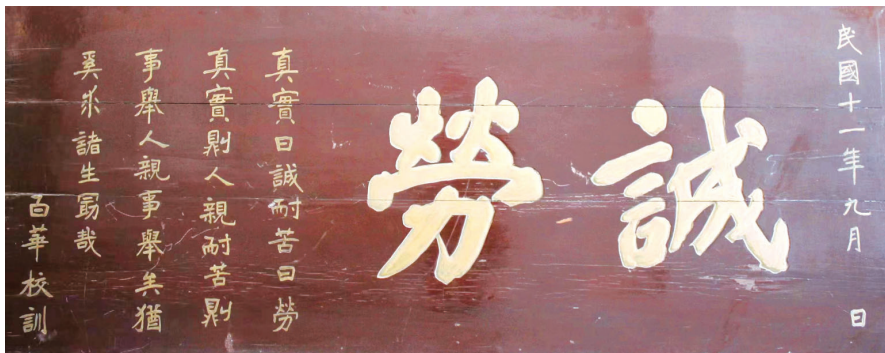 民國十一年九月　日
誠勞
真實曰誠耐苦曰勞
真實則人親耐苦則
事舉人親事舉矣猶
奚求諸生勗哉
百華校訓